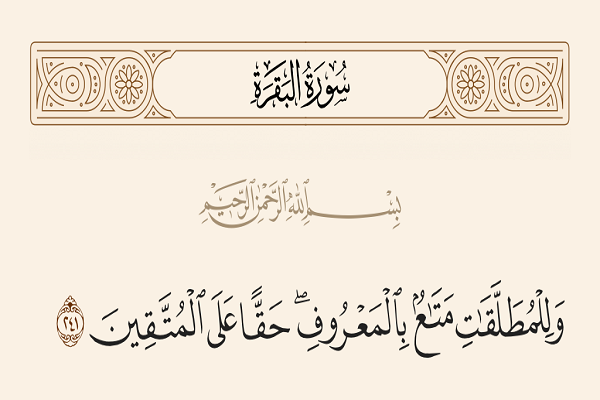 سُورَةُ البَقَرَةِ
بِسْمِ ٱللَّهِ ٱلرَّحْمَٰنِ ٱلرَّحِيمِ
وَلِلْمُطَلَّقَٰتِ مَتَٰعٌۢ بِٱلْمَعْرُوفِ ۖ حَقًّا عَلَى ٱلْمُتَّقِينَ ٢٤١